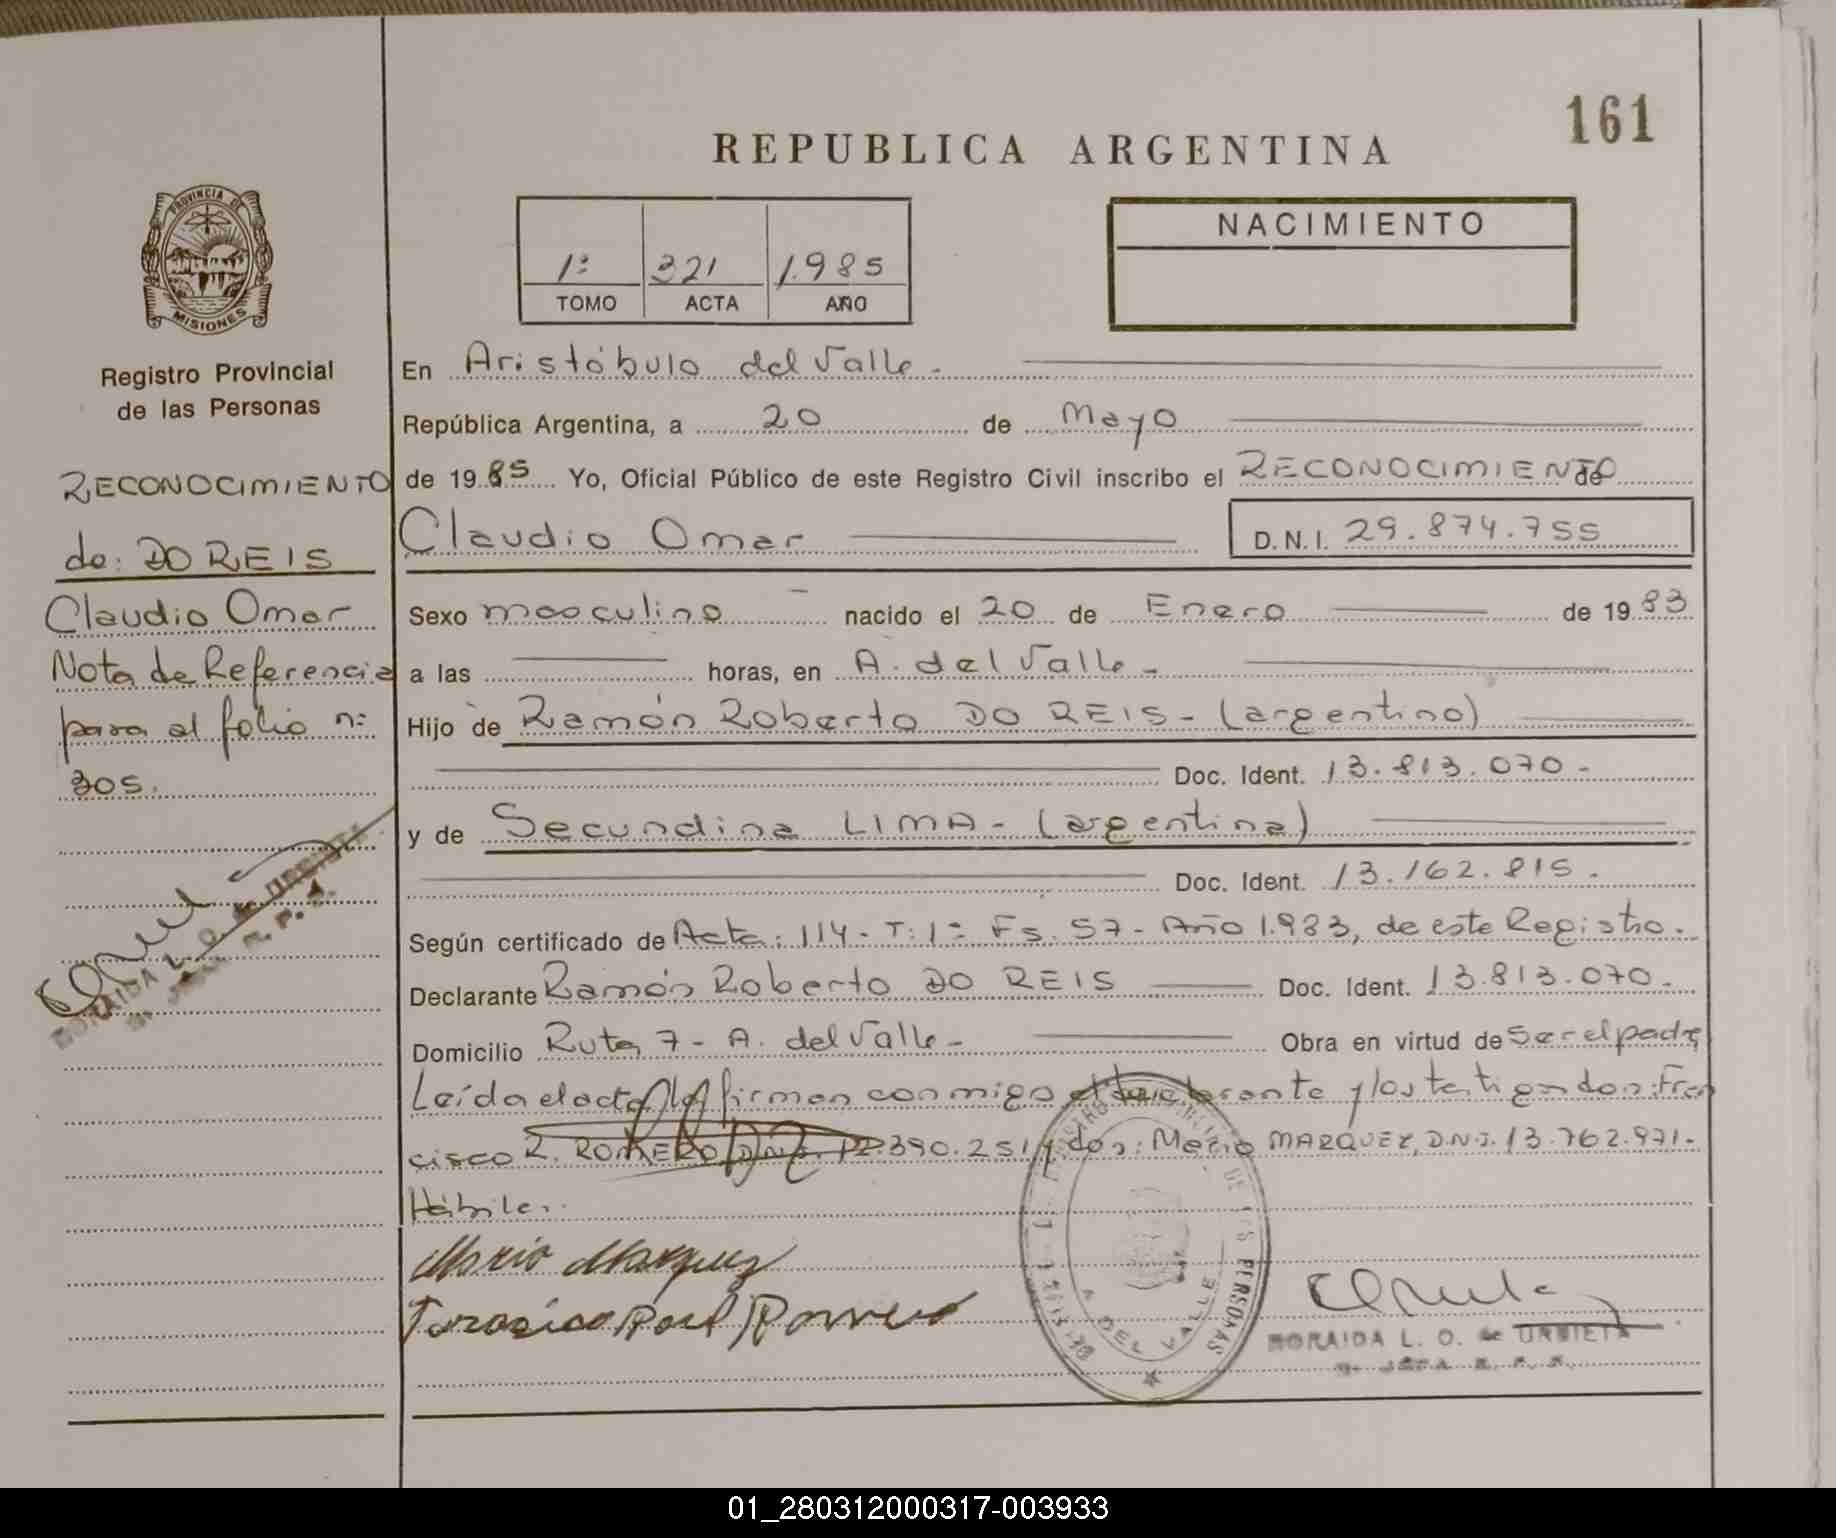 161
REPUBLICA ARGENTINA
PROVINCIA DE
MISIONES
Registro Provincial
de las Personas
1º 321 1.985
TOMO ACTA AÑO
NACIMIENTO
RECONOCIMIENTO
de: DO REIS
Claudio Omar
Nota de Referencia
para al folio nº
305.
En Aristóbulo del Valle.
República Argentina, a 20 de Mayo
de 1985 Yo, Oficial Público de este Registro Civil inscribo el RECONOCIMIENTO de
Claudio Omar D.N.I. 29.874.755
Sexo masculino nacido el 20 de Enero de 1983
a las horas, en A. del Valle-
Hijo de Ramón Roberto DO REIS- (argentino)
Doc. Ident. 13.813.070-
y de Secundina LIMA- (argentina)
Doc. Ident. 13.162.815.
Según certificado de Acta: 114- T: 1º Fs. 57- Año 1.983, de este Registro.
Declarante Ramón Roberto DO REIS Doc. Ident. 13.813.070.
Domicilio Ruta 7- A. del Valle- Obra en virtud de Ser el padre
Leída el acta la firman conmigo el declarante y los testigos don: Fran
cisco R. ROMERO D.N.I. 12.390.251 y don: Mario MARQUEZ, D.N.I. 13.762.971-
Hábiles.
Mario Marquez
Francisco Raul Romero
DE LAS PERSONAS
A. DEL VALLE
MORAIDA L. O. de URBIETA
01_280312000317-003933